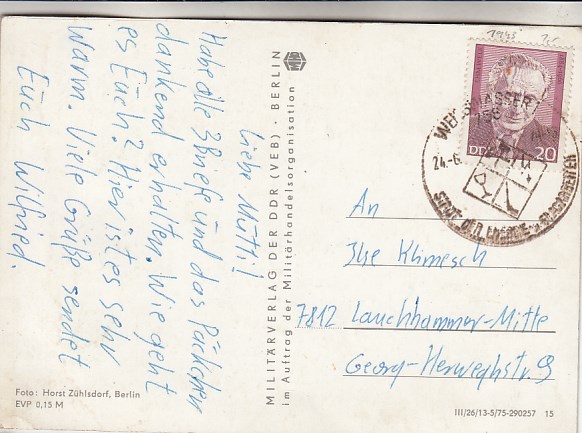 Liebe Mutti!
Habe alle 3 Briefe und das Päckchen
dankend erhalten. Wie geht
es Euch? Hier ist es sehr
warm. Viele Grüße sendet
Euch Wilfried.
Foto: Horst Zühlsdorf, Berlin
EVP 0,15 M
MILITÄRVERLAG DER DDR (VEB) · BERLIN
im Auftrag der Militärhandelsorganisation
1943
DDR 20
WEISSWASSER
24.-6.
STADT DER ENERGIE- u. GLASARBEITER
An
Ilse Klimesch
7812 Lauchhammer-Mitte
Georg-Herweghstr. 9
III/26/13-5/75-290257 15